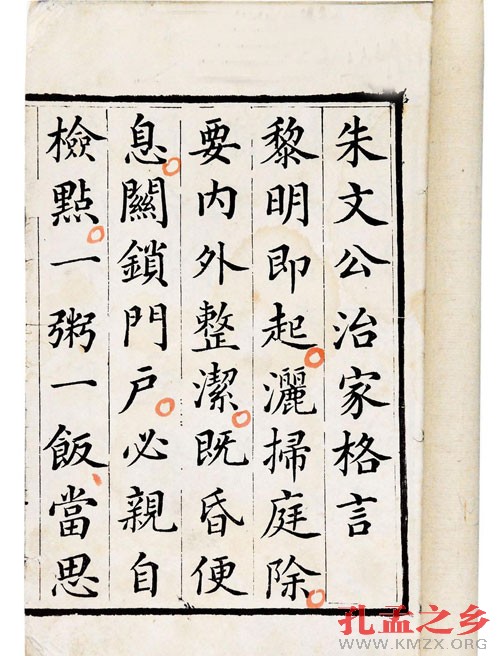 朱文公治家格言
黎明即起。灑掃庭除。
要内外整潔。既昏便
息。關鎖門户。必親自
檢點。一粥一飯、當思
孔孟之乡
WWW.KMZX.ORG